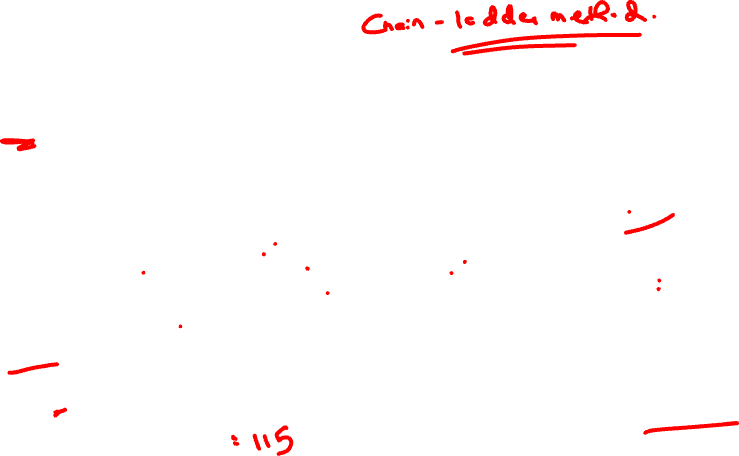 Chain-ladder method.
: 115